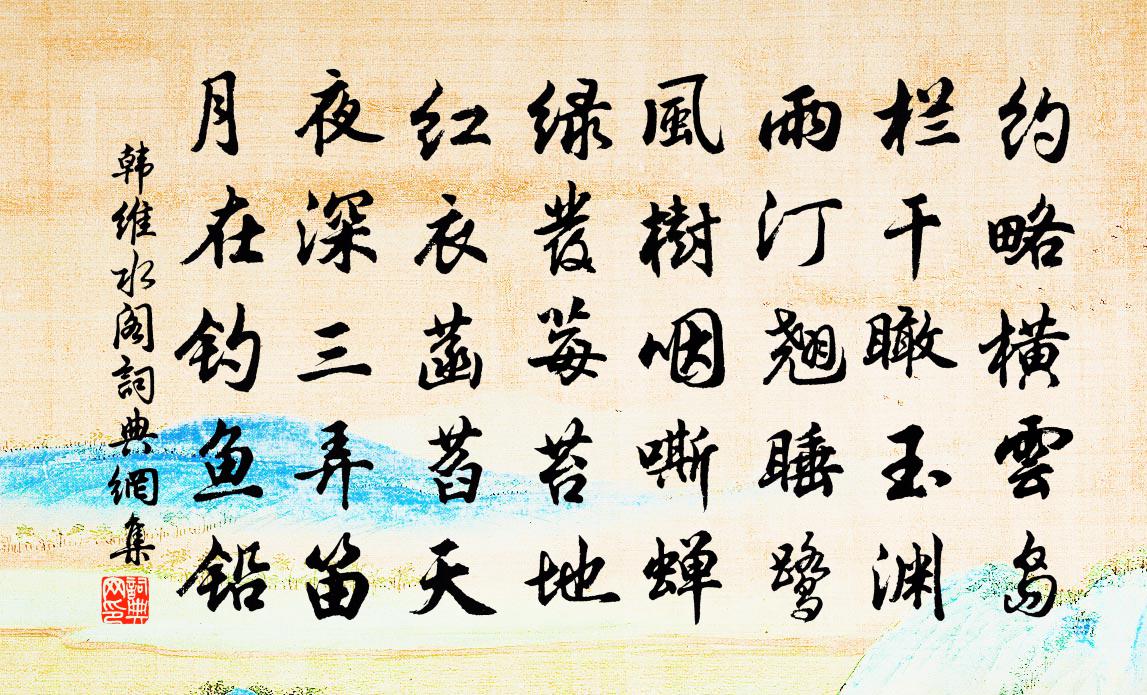 约略横雲岛
栏干瞰玉渊
雨汀翘睡鹭
風樹咽嘶蝉
绿發莓苔地
红衣菡萏天
夜深三弄笛
月在钓鱼船
韩维水阁詞典網集
詞典网印